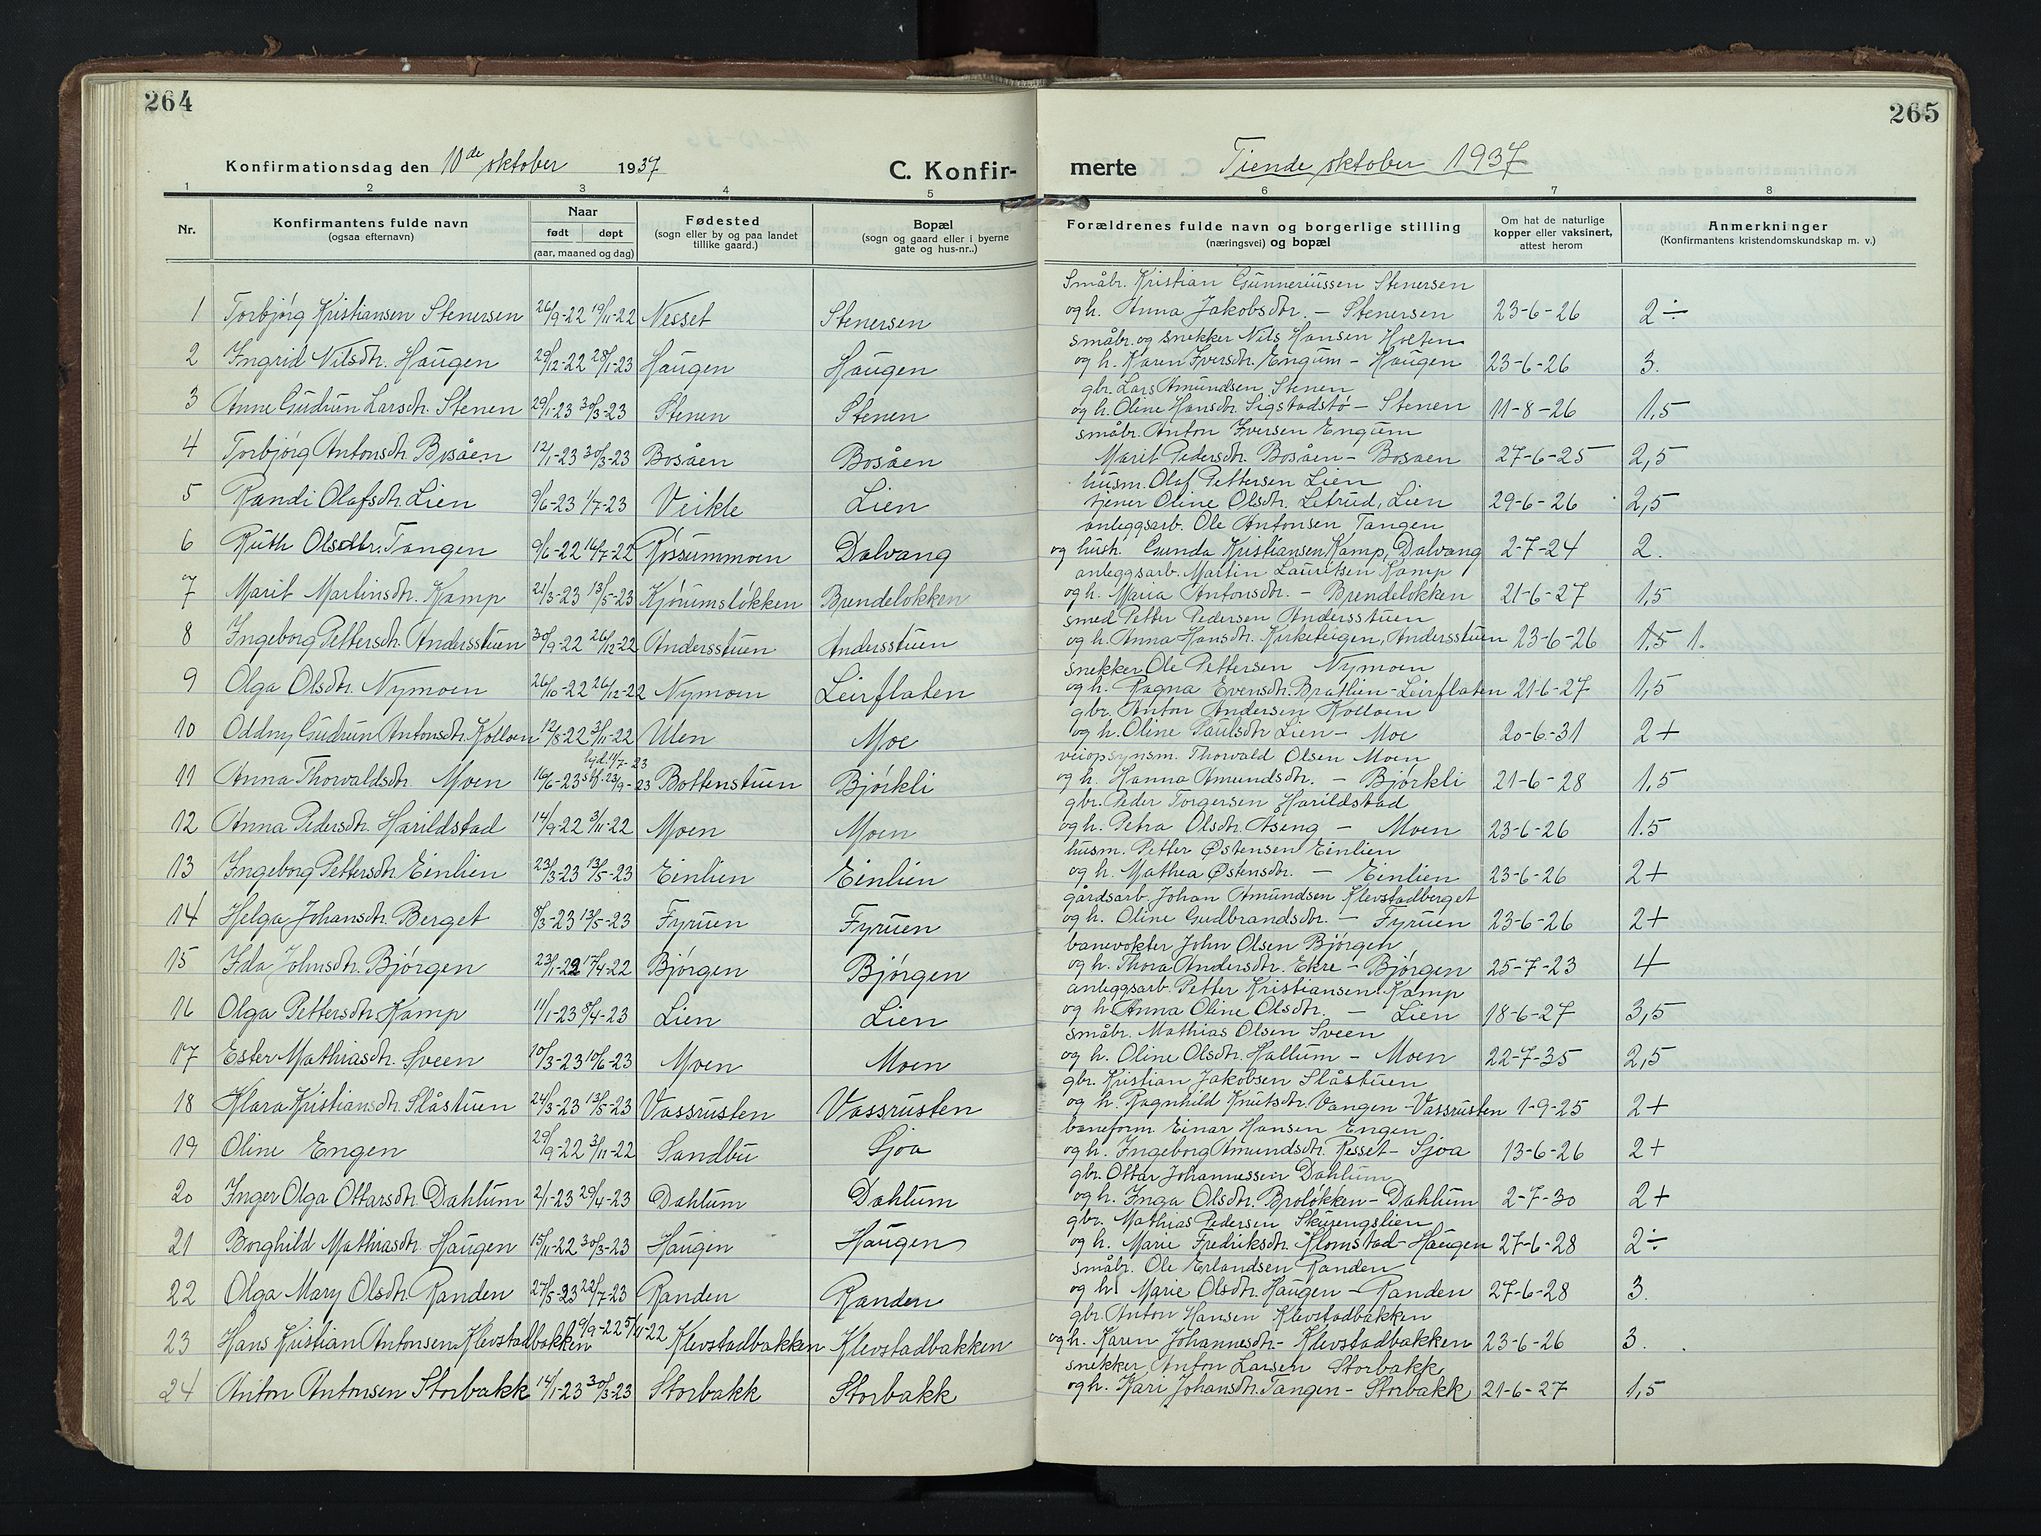 264
Konfirmationsdag den 10de oktober 1937
C. Konfir-
1 2 3 4 5
Nr. Konfirmantens fulde navn (ogsaa efternavn) Naar født døpt (aar, maaned og dag) Fødested (sogn eller by og paa landet tillike gaard.) Bopæl (sogn og gaard eller i byerne gate og hus-nr..)
1 Torbjørg Kristiansen Stenersen 26/9-22 19/11-22 Nesset Stenersen
2 Ingrid Nilsdtr. Haugen 29/12-22 28/1-23 Haugen Haugen
3 Anne Gudrun Larsdtr. Stenen 29/1-23 30/3-23 Stenen Stenen
4 Torbjørg Antonsdtr Bosåen 12/1-23 30/3-23 Bosåen Bosåen
5 Randi Olafsdtr. Lien 9/6-23 1/7-23 Veikle Lien
6 Ruth Olsdtr. Tangen 9/6-22 16/7-22 Røssummoen Dalvang
7 Marit Martinsdtr. Kamp 21/3-23 13/5-23 Kjørumsløkken Brendeløkken
8 Ingeborg Pettersdtr. Andersstuen 30/9-22 26/12-22 Andersstuen Andersstuen
9 Olga Olsdtr. Nymoen 26/10-22 26/12-22 Nymoen Leirflaten
10 Oddny Gudrun Antonsdtr. Kolloen 12/8-22 3/11-22 Ulen Moe
11 Anna Thorvaldsdtr. Moen 16/6-23 stf. 23/9-23 Bottenstuen Bjørkli
12 Anna Pedersdtr. Harildstad 14/9-22 3/11-22 Moen Moen
13 Ingeborg Pettersdtr Einlien 23/3-23 13/5-23 Einlien Einlien
14 Helga Johansdtr. Berget 8/3-23 13/5-23 Fyruen Fyruen
15 Ida Johnsdtr. Bjørgen 23/1-22 17/4-22 Bjørgen Bjørgen
16 Olga Pettersdtr. Kamp 11/1-23 8/4-23 Lien Lien
17 Ester Mathiasdtr. Sveen 10/3-23 10/6-23 Moen Moen
18 Klara Kristiansdtr. Slåstuen 24/3-23 13/5-23 Vassrusten Vassrusten
19 Oline Engen 29/9-22 3/11-22 Sandbu Sjoa
20 Inger Olga Ottarsdtr. Dahlum 2/1-23 29/4-23 Dahlum Dahlum
21 Borghild Mathiasdtr. Haugen 15/11-22 30/3-23 Haugen Haugen
22 Olga Mary Olsdtr. Randen 27/5-23 22/7-23 Randen Randen
23 Hans Kristian Antonsen Klevstadbakken 9/9-22 5/11-22 Klevstadbakken Klevstadbakken
24 Anton Antonsen Storbakk 14/1-23 30/3-23 Storbakk Storbakk
265
merte Tiende oktober 1937
6 7 8
Forældrenes fulde navn og borgerlige stilling (næringsvei) og bopæl Om hat de naturlige kopper eller vaksinert, attest herom Anmerkninger (Konfirmantens kristendomskundskap m. v.)
Småbr. Kristian Gunneriussen Stenersen
og h. Anna Jakobsdtr. - Stenersen 23-6-26 2÷
småbr. og snekker Nils Hansen Holten
og h. Karen Iversdtr. Engum - Haugen 23-6-26 3.
gbr. Lars Amundsen Stenen
og h. Oline Hansdtr. Sigstadstø - Stenen 11-8-26 1,5
småbr. Anton Iversen Engum
Marit Pedersdtr. Bosåen - Bosåen 27-6-25 2,5
husm. Olaf Pettersen Lien
tjener Oline Olsdtr. Letrud, Lien 29-6-26 2,5
anleggsarb. Ole Antonsen Tangen
og hustr. Gunda Kristiansen Kamp, Dalvang 2-7-24 2.
anleggsarb. Martin Lauritsen Kamp
og h. Maria Antonsdtr. - Brendeløkken 21-6-27 1,5
smed Petter Pedersen Andersstuen
og h. Anna Hansdtr. Kirketeigen, Andersstuen 23-6-26 1,5 1.
snekker Ole Pettersen Nymoen
og h. Ragna Evensdtr. Bratlien - Leirflaten 21-6-27 1,5
gbr. Anton Andersen Kolloen
og h. Oline Paulsdtr Lien - Moe 20-6-31 2+
veiopsynsm. Thorvald Olsen Moen
og h. Hanna Amundsdtr. - Bjørkli 21-6-28 1,5
gbr. Peder Torgersen Harildstad
og h. Petra Olsdtr. Aseng - Moen 23-6-26 1.5
husm. Petter Østensen Einlien
og h. Mathea Østensdtr. - Einlien 23-6-26 2+
gårdsarb. Johan Amundsen Klevstadberget
og h. Oline Gudbrandsdtr. - Fyruen 23-6-26 2+
banevokter John Olsen Bjørgen
og h. Thora Andersdtr. Ekre - Bjørgen 25-7-23 4
anleggsarb. Petter Kristiansen Kamp
og h. Anna Oline Olsdtr. - Lien 18-6-27 3,5
småbr. Mathias Olsen Sveen
og h. Oline Olsdtr. Hallum - Moen 22-7-35 2,5
gbr. Kristian Jakobsen Slåstuen
og h. Ragnhild Knutsdtr. Vangen - Vassrusten 1-9-25 2+
baneform. Einar Hansen Engen
og h. Ingeborg Amundsdtr. Resset - Sjoa 13-6-26 2+
gbr. Ottar Johannessen Dahlum
og h. Inga Olsdtr. Broløkken - Dahlum 2-7-30 2+
gbr. Mathias Pedersen Skurengslien
og h. Marie Fredriksdtr. Klomstad - Haugen 27-6-28 2÷
småbr. Ole Erlandsen Randen
og h. Marie Olsdtr. Haugen - Randen 27-6-28 3.
gbr. Anton Hansen Klevstadbakken
og h. Karen Johannesdtr - Klevstadbakken 23-6-26 3.
snekker Anton Larsen Storbakk
og h. Kari Johansdtr. Tangen - Storbakk 21-6-27 1,5